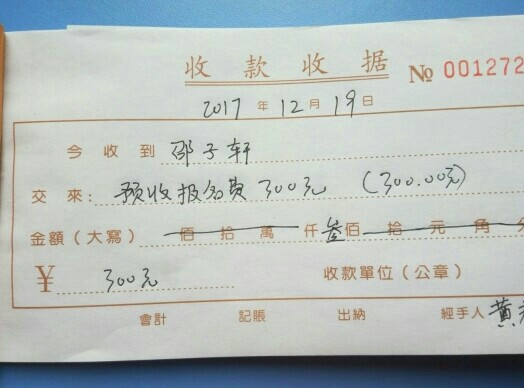 收款收据 No 001272
2017年12月19日
今收到 邵子轩
交来: 预收报名费300元 (300.00元)
金額(大寫) 佰拾萬仟叁佰拾元角分
¥ 300元 收款單位(公章)
會計 記賬 出納 經手人 黄